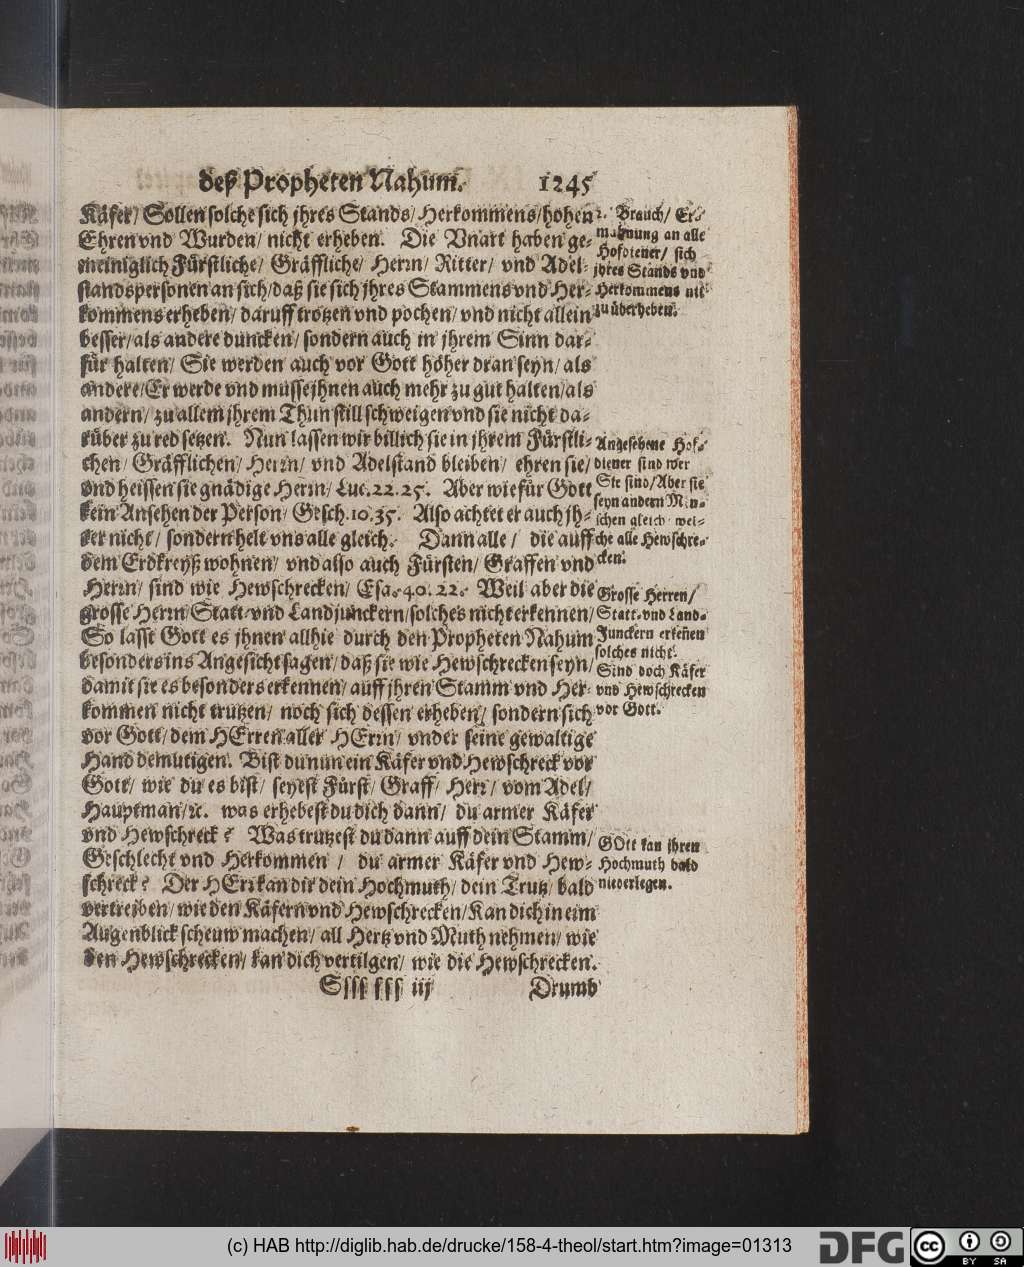 deß Propheten Nahum. 1245
Käfer/ Sollen solche sich jhres Stands/ Herkommens/ hohen
Ehren vnd Wurden/ nicht erheben. Die Vnart haben ge-
meiniglich Fürstliche/ Gräffliche/ Herrn/ Ritter/ vnd Adel-
standspersonen an sich/ daß sie sich jhres Stammens vnd Her-
kommens erheben/ daruff trotzen vnd pochen/ vnd nicht allein
besser/ als andere duncken/ sondern auch in jhrem Sinn dar-
für halten/ Sie werden auch vor Gott höher dran seyn/ als
andere/ Er werde vnd müsse jhnen auch mehr zu gut halten/ als
andern/ zu allem jhrem Thun still schweigen vnd sie nicht da-
rüber zu red setzen. Nun lassen wir billich sie in jhrem Fürstli-
chen/ Gräfflichen/ Herrn/ vnd Adelstand bleiben/ ehren sie/
vnd heissen sie gnädige Herrn/ Luc. 22. 25. Aber wie für Gott
kein Ansehen der Person/ Gesch. 10. 35. Also achtet er auch jh-
rer nicht/ sondern helt vns alle gleich. Dann alle/ die auff
dem Erdkreyß wohnen/ vnd also auch Fürsten/ Graffen vnd
Herrn/ sind wie Hewschrecken/ Esa. 40. 22. Weil aber die
grosse Herrn/ Statt- vnd Landjunckern/ solches nicht erkennen/
So lasst Gott es jhnen allhie durch den Propheten Nahum
besonders ins Angesicht sagen/ daß sie wie Hewschrecken seyn/
damit sie es besonders erkennen/ auff jhren Stamm vnd Her-
kommen nicht trutzen/ noch sich dessen erheben/ sondern sich
vor Gott/ dem HErren aller HErrn/ vnder seine gewaltige
Hand demutigen. Bist du nun ein Käfer vnd Hewschreck vor
Gott/ wie du es bist/ seyest Fürst/ Graff/ Herr/ vom Adel/
Hauptman/ ꝛc. was erhebest du dich dann/ du armer Käfer
vnd Hewschreck? Was trutzest du dann auff dein Stamm/
Geschlecht vnd Herkommen/ du armer Käfer vnd Hew-
schreck? Der HErr kan dir dein Hochmuth/ dein Trutz/ bald
vertreiben/ wie den Käfern vnd Hewschrecken/ Kan dich in eim
Augenblick scheuw machen/ all Hertz vnd Muth nehmen/ wie
den Hewschrecken/ kan dich vertilgen/ wie die Hewschrecken.
Ssss sss iij Drumb
2. Brauch/ Er-
mahnung an alle
Hofdiener/ sich
jhres Stands vnd
Herkommens nit
zu überheben.
Angesehene Hof-
diener sind wer
Sie sind/ Aber sie
seyn andern Men-
schen gleich/ wel-
che alle Hewschre-
cken.
Grosse Herren/
Statt- vnd Land-
Junckern erkeñen
solches nicht.
Sind doch Käfer
vnd Hewschrecken
vor Gott.
GOtt kan jhren
Hochmuth bald
niderlegen.
(c) HAB http://diglib.hab.de/drucke/158-4-theol/start.htm?image=01313
DFG
cc BY SA